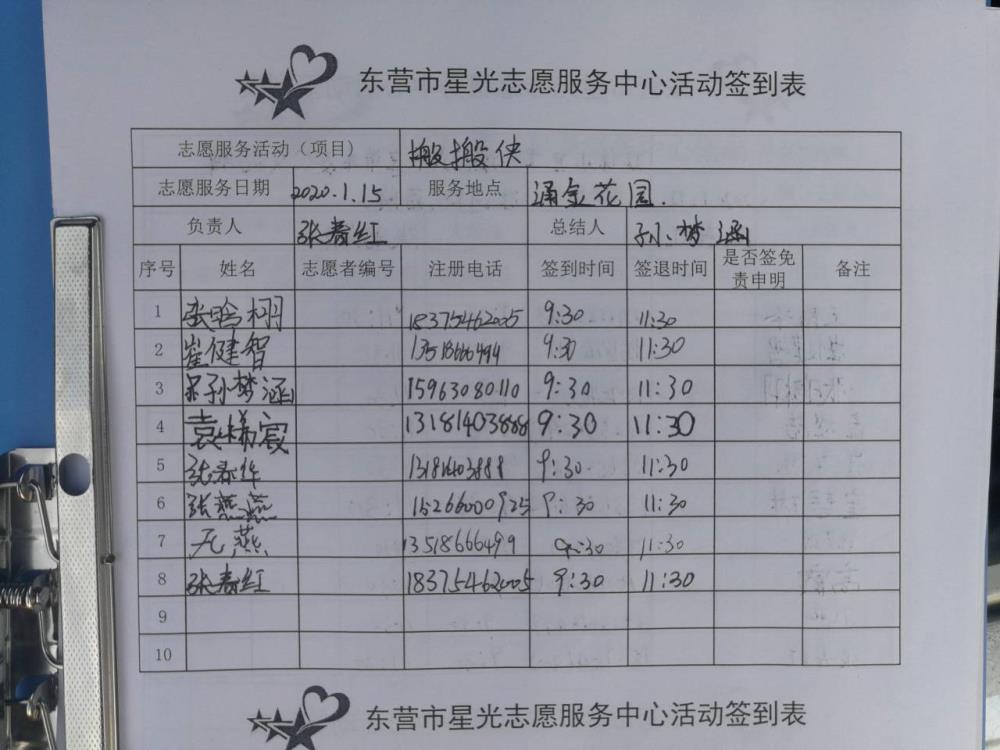 东营市星光志愿服务中心活动签到表
志愿服务活动（项目） 搬搬侠
志愿服务日期 2020.1.15 服务地点 涌金花园.
负责人 张春红 总结人 孙梦涵
序号 姓名 志愿者编号 注册电话 签到时间 签退时间 是否签免责申明 备注
1 张晗栩 18375462005 9:30 11:30
2 崔健智 9:30 11:30
3 孙梦涵 15963080110 9:30 11:30
4 袁 宸 13181403888 9:30 11:30
5 张春华 13181403888 9:30 11:30
6 张燕燕 15266000925 9:30 11:30
7 燕 13518666499 9:30 11:30
8 张春红 18375462005 9:30 11:30
9
10
东营市星光志愿服务中心活动签到表